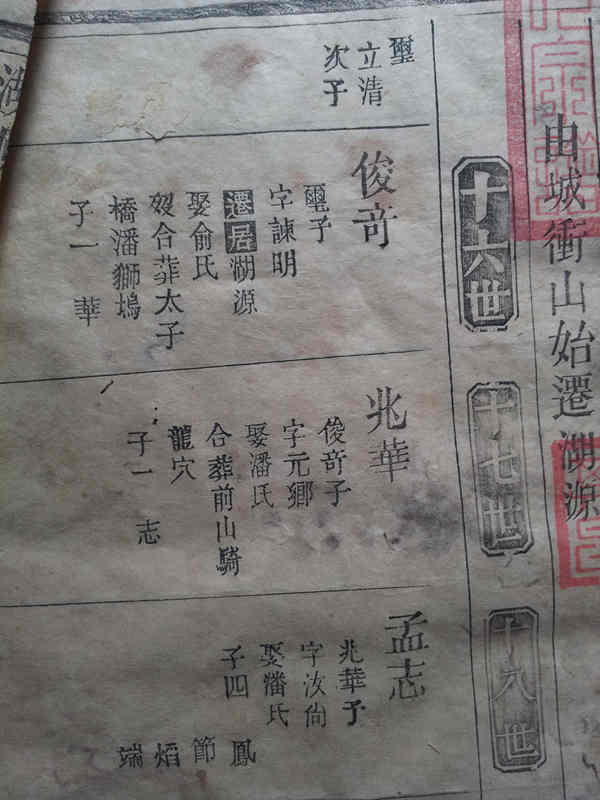 由城衝山始遷湖源
璽
立清
次子
十六世
俊奇
璽子
字諫明
遷居湖源
娶俞氏
歿合葬太子
橋潘獅塢
子一 華
十七世
兆華
俊奇子
字元鄉
娶潘氏
合葬前山騎
龍穴
子一 志
十八世
孟志
兆華子
字汝尚
娶潘氏
子四 鳳
節
焰
端